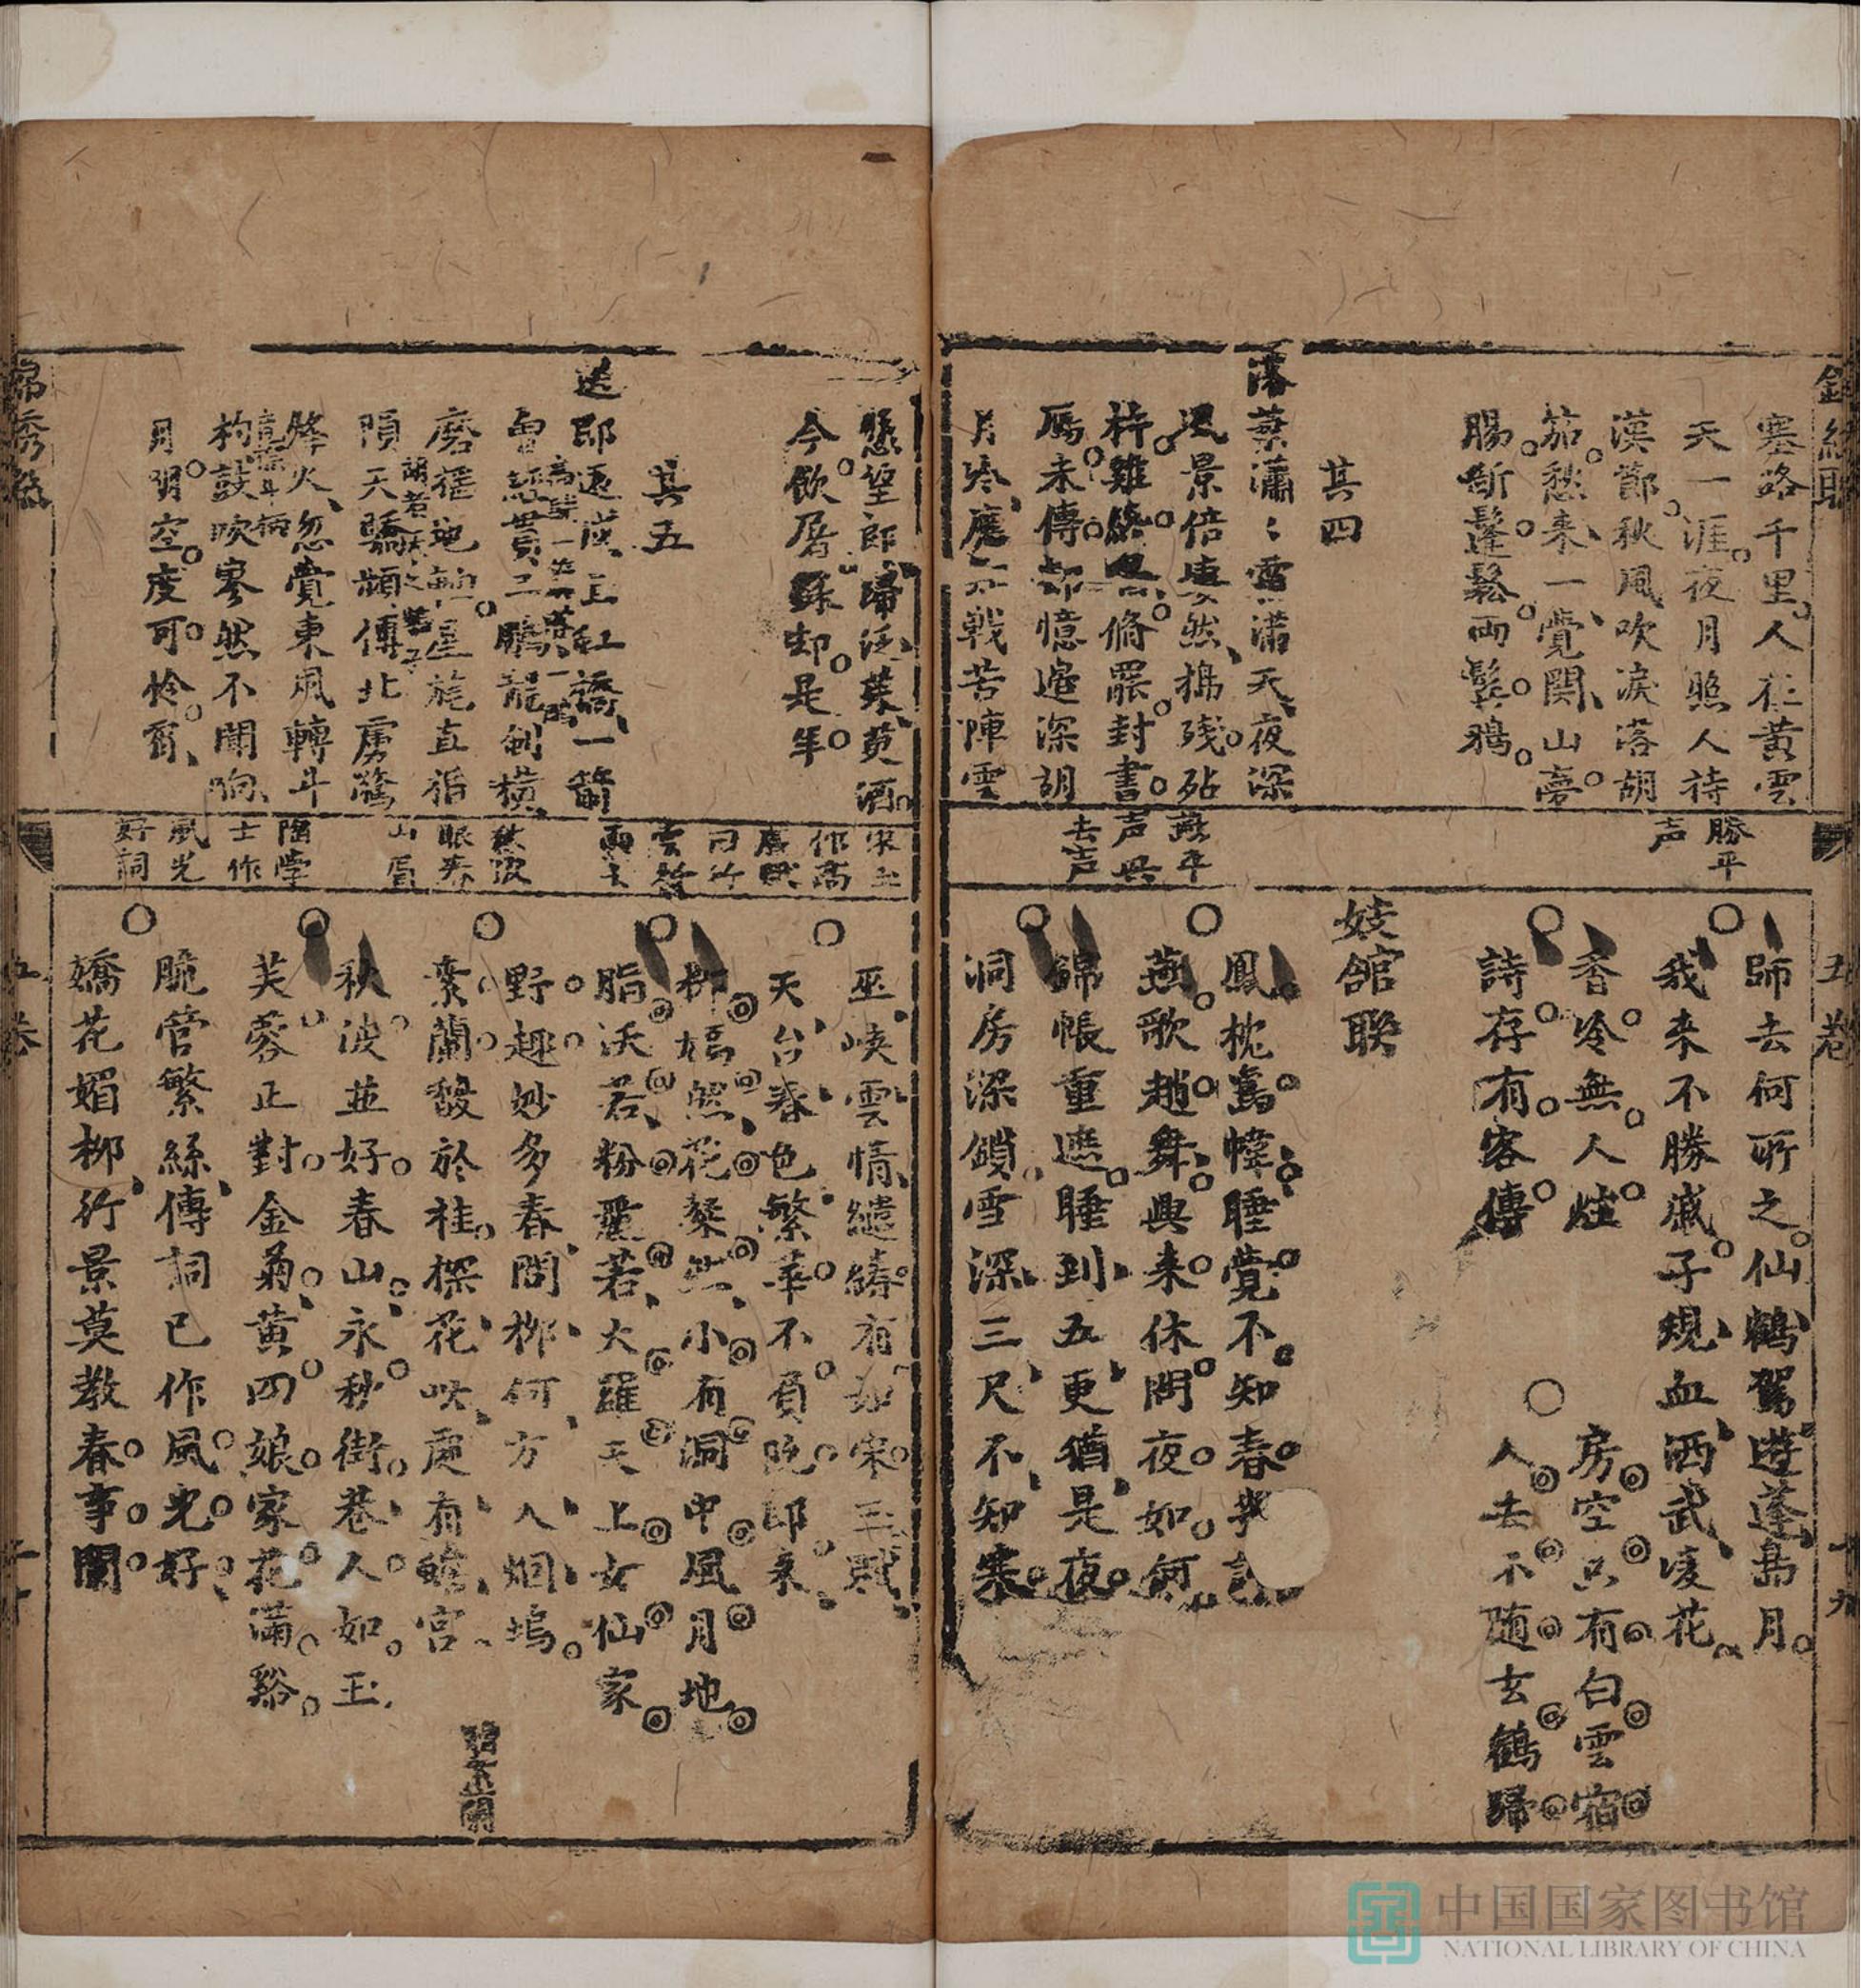 五卷
十九
塞路千里人在黄雲
天一涯夜月照人待
漢節秋風吹淚落胡
笳愁来一覺関山夢
腸断鬔鬆両鬓鴉
其四
落葉瀟〻雪滿天夜深
風景倍凄然搗残砧
杵難終
脩罷封書
鴈未傳却憶邉深胡
月冷
戦苦陣雲
勝平
声
燕平
声興
去声
師去何所之仙鶴駕遊蓬島月
我来不勝戚子規血洒武凌花
香冷無人炷
詩存有客傳
房空只有白雲宿
人去不随玄鶴歸
妓舘聫
鳳枕鴛幃睡覺不知春
燕歌趙舞興来休問夜如何
錦帳重遮睡到五更猶是夜
洞房深鎖雪深三尺不知寒
愁望郎歸泛茱萸酒
今飲屠蘇却是年
其五
送郎遠戍上紅橋一箭
曾經貫二鵬龍劍横
磨
地軸星旄直指
隕天驕顱傳北虜驚
烽火忽覺東風轉斗
杓鼓吹寥然不聞响
月明空度可怜宵
宋玉
作高
唐賦
司竹
雲竹
雨
秋波
眼春
山眉
陶學
士作
風光
好詞
巫峽雲情繾綣有如宋玉賦
天台春色繁華不負阮郎来
柳嫣然花粲然小有洞中風月地
脂沃若粉麗若大羅天上女仙家
野趣妙多春問柳何方入烟塢
素蘭馥於桂探花咲處有蟾宮
秋波並好春山永秒街巷人如玉
芙蓉正對金菊黄四娘家花滿谿
脆管繁絲傳詞已作風光好
嬌花媚柳行景莫教春事闌
錦秀
五卷
中国国家图书馆
NATIONAL LIBRARY OF CHINA